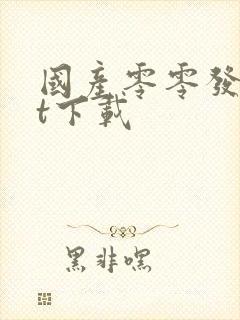 國產零零發
t下載
黑非嘿